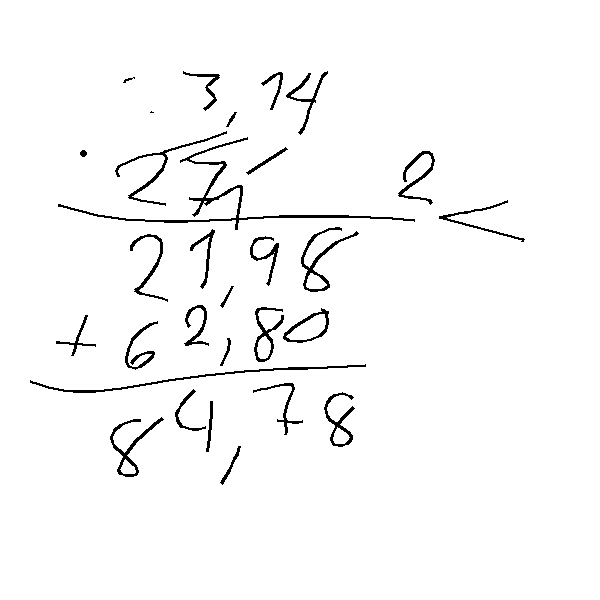 3,14
· 27,-
2 <
21,98
+ 62,80
84,78